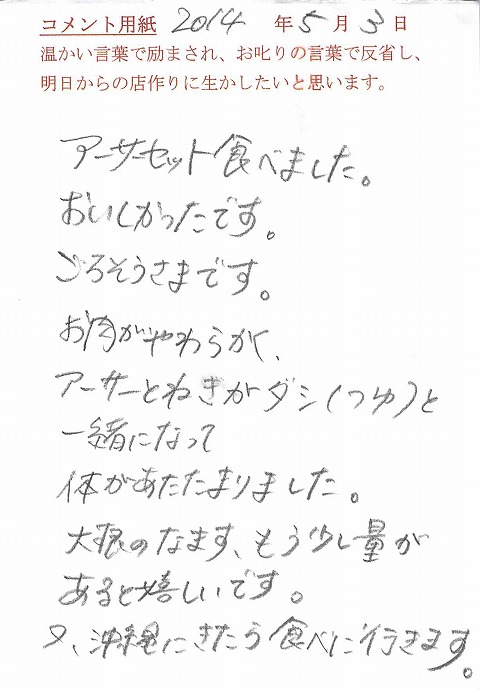 コメント用紙 2014 年 5 月 3 日
温かい言葉で励まされ、お叱りの言葉で反省し、
明日からの店作りに生かしたいと思います。
アーサーセット食べました。
おいしかったです。
ごちそうさまです。
お肉がやわらかく、
アーサーとねぎがダシ(つゆ)と
一緒になって
体があたたまりました。
大根のなます、もう少し量が
あると嬉しいです。
又、沖縄にきたら食べに行きます。